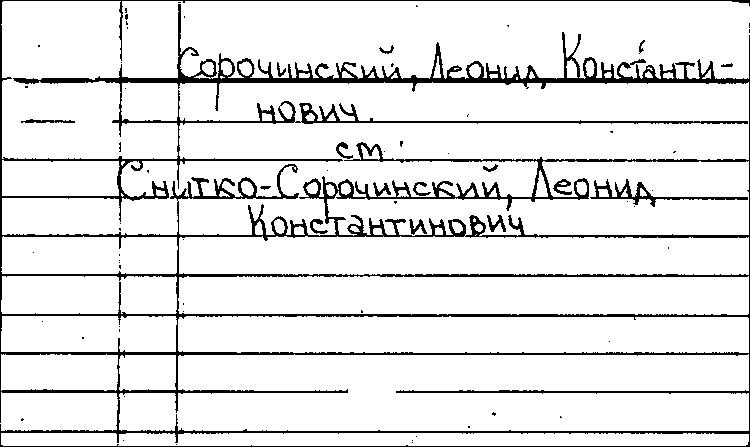 Сорочинский, Леонид Константи-
нович.
см.
Снитко-Сорочинский, Леонид
Константинович